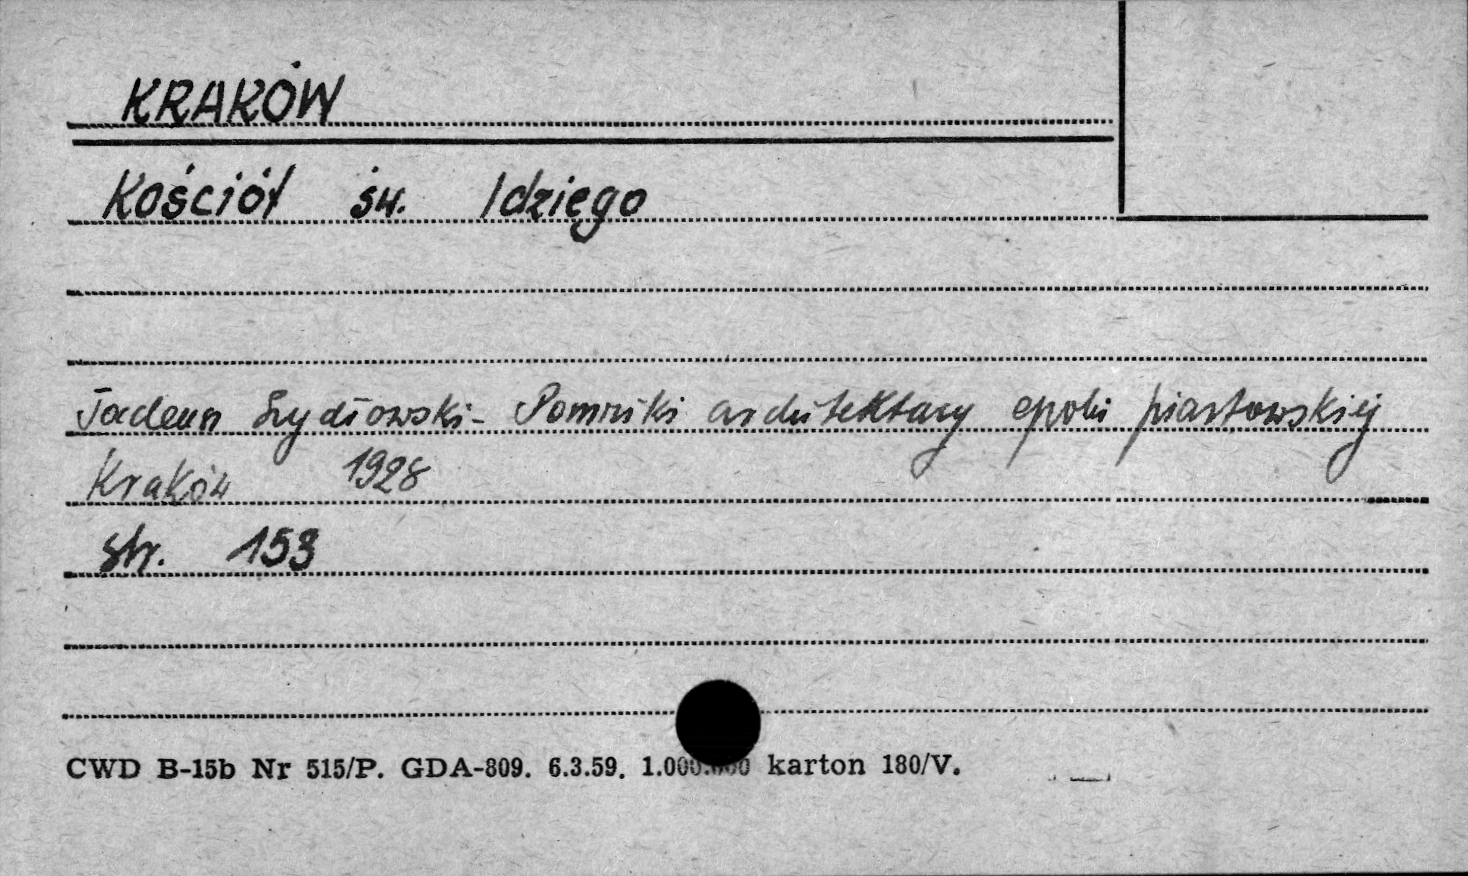 KRAKÓW
Kościół św. Idziego
Tadeusz Szydłowski - Pomniki architektury epoki piastowskiej
Kraków 1928
str. 153
CWD B-15b Nr 515/P. GDA-809. 6.3.59. 1.000.000 karton 180/V.